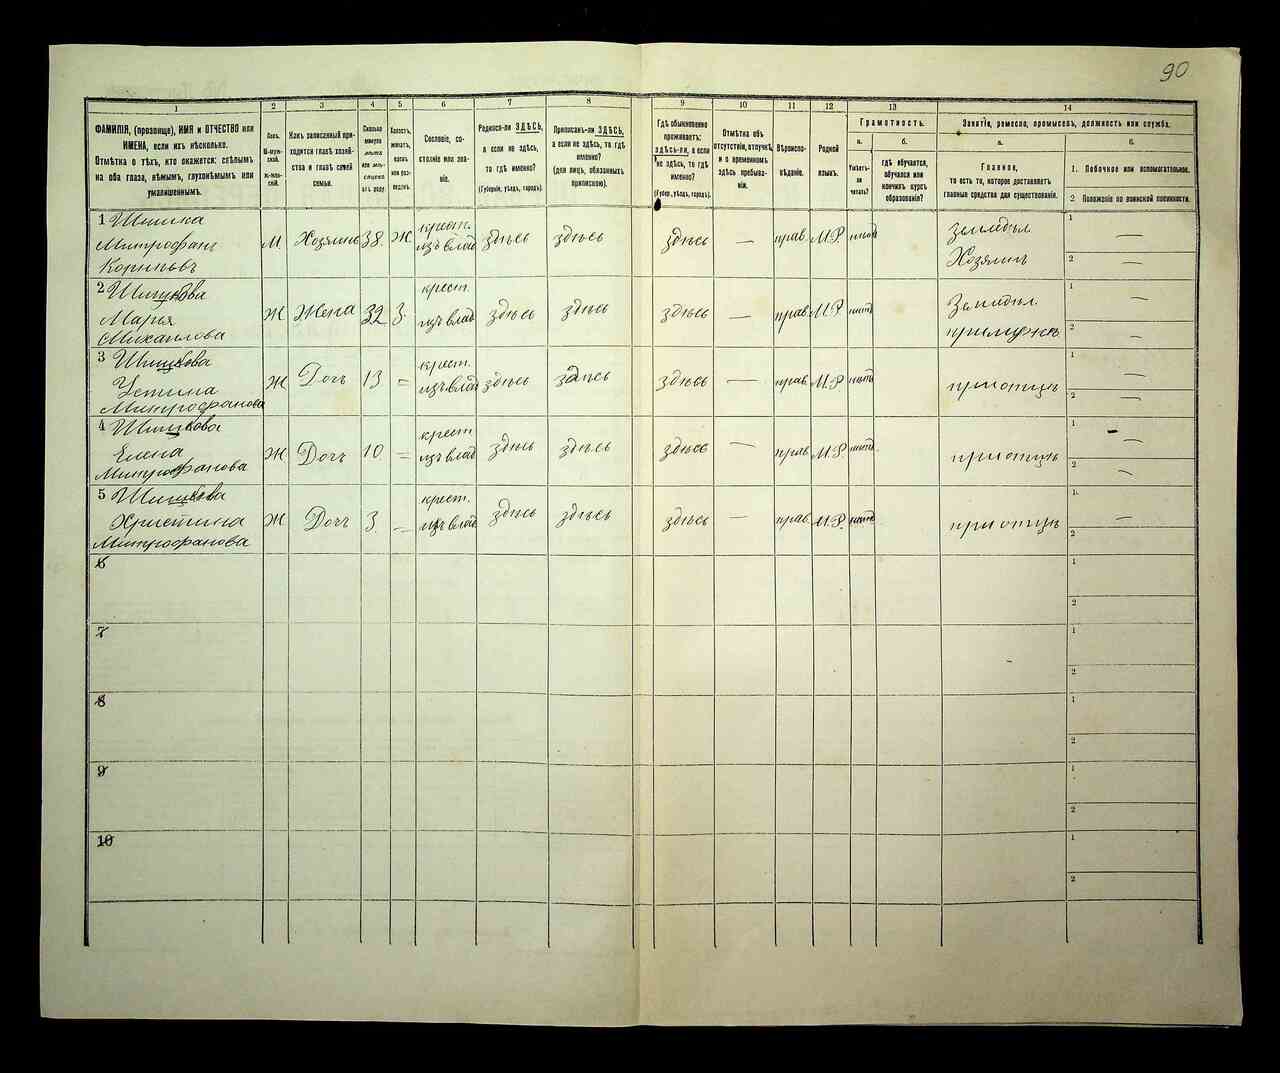 90
1 2 3 4 5 6 7 8 9 10 11 12 13 14
ФАМИЛІЯ, (прозвище), ИМЯ и ОТЧЕСТВО или
ИМЕНА, если ихъ нѣсколько.
Отмѣтка о тѣхъ, кто окажется: слѣпымъ
на оба глаза, нѣмымъ, глухонѣмымъ или
умалишеннымъ.
Полъ.
М-муж-
ской.
Ж-жен-
скій.
Какъ записанный при-
ходится главѣ хозяй-
ства и главѣ своей
семьи.
Сколько
минуло
лѣтъ
или мѣ-
сяцевъ
отъ роду.
Холостъ,
женатъ,
вдовъ
или раз-
веденъ.
Сословіе, со-
стояніе или зва-
ніе.
Родился-ли ЗДѢСЬ,
а если не здѣсь,
то гдѣ именно?
(Губернія, уѣздъ, городъ).
Приписанъ-ли ЗДѢСЬ,
а если не здѣсь, то гдѣ
именно?
(для лицъ, обязанныхъ
припискою).
Гдѣ обыкновенно
проживаетъ:
здѣсь-ли, а если
не здѣсь, то гдѣ
именно?
(Губер., уѣздъ, городъ).
Отмѣтка объ
отсутствіи, отлучкѣ
и о временномъ
здѣсь пребыва-
ніи.
Вѣроиспо-
вѣданіе.
Родной
языкъ.
Грамотность.
а.
Умѣетъ-
ли
читать?
б.
гдѣ обучается,
обучался или
кончилъ курсъ
образованія?
Занятіе, ремесло, промыселъ, должность или служба.
а.
Главное,
то есть то, которое доставляетъ
главныя средства для существованія.
б.
1. Побочное или вспомогательное.
2 Положеніе по воинской повинности.
1 Шишка
Митрофанъ
Корнѣевъ
М Хозяинъ 38. Ж крест.
изъ влад здѣсь здѣсь здѣсь — прав. М.Р. нѣтъ земледѣл.
Хозяинъ
1 —
2 —
2 Шишкова
Марья
Михаилова
Ж Жена 32 З. крест.
изъ влад здѣсь здѣсь здѣсь — прав. М.Р. нѣтъ Земледѣл.
примужѣ
1 —
2 —
3 Шишкова
Устина
Митрофанова
Ж Дочь 13 = крест.
изъ влад здѣсь здѣсь здѣсь — прав. М.Р. нѣтъ приотцѣ
1 —
2 —
4 Шишкова
Елена
Митрофанова
Ж Дочь 10 = крест
изъ влад здѣсь здѣсь здѣсь — прав. М.Р. нѣтъ приотцѣ
1 —
2 —
5 Шишкова
Христина
Митрофанова
Ж Дочь 3 — крест.
изъ влад здѣсь здѣсь здѣсь — прав. М.Р. нѣтъ приотцѣ
1. —
2
6
1
2
7
1
2
8
1
2
9
1
2
10
1
2